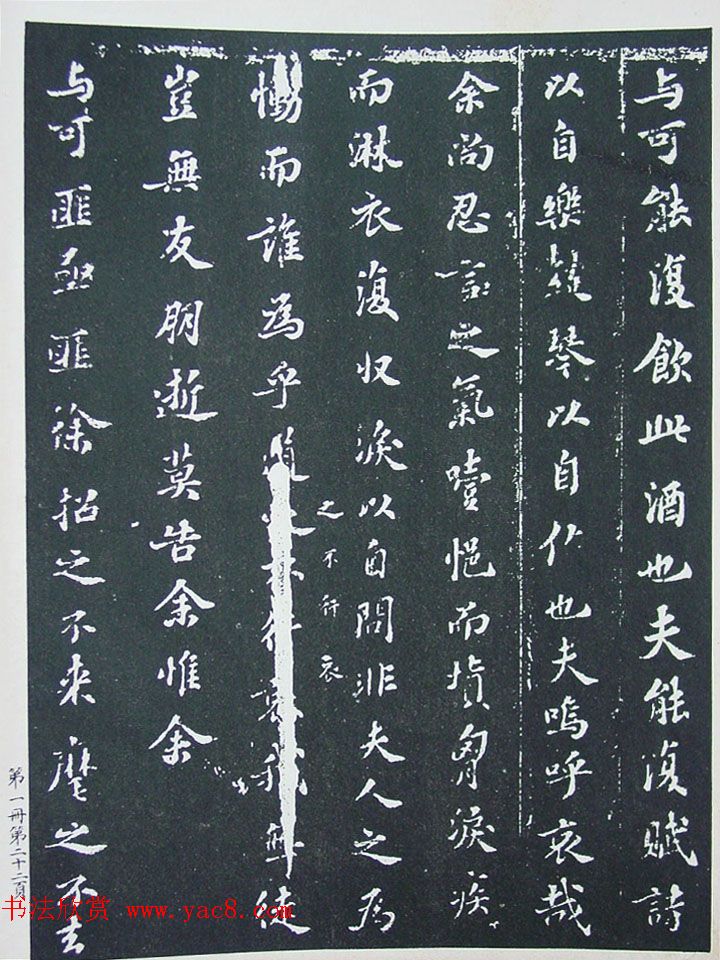 与可能復飲此酒也夫能復賦詩
以自樂鼓琴以自也夫嗚呼哀哉
余尚忍言之氣噎悒而塡胷淚疾
而淋衣復収淚以自問非夫人之為
之不行哀
慟而誰為乎道之不行哀我無徒
豈無友朋逝莫告余惟余
与可匪亟匪徐招之不来麾之不去
第一冊第二十二頁
书法欣赏 www.yac8.com